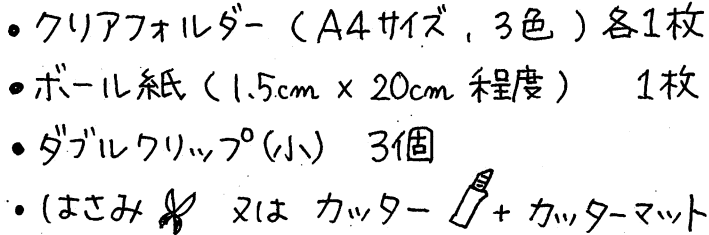 • クリアフォルダー（A4サイズ, 3色）各1枚
• ボール紙（1.5cm × 20cm 程度） 1枚
• ダブルクリップ(小) 3個
• はさみ 又は カッター + カッターマット